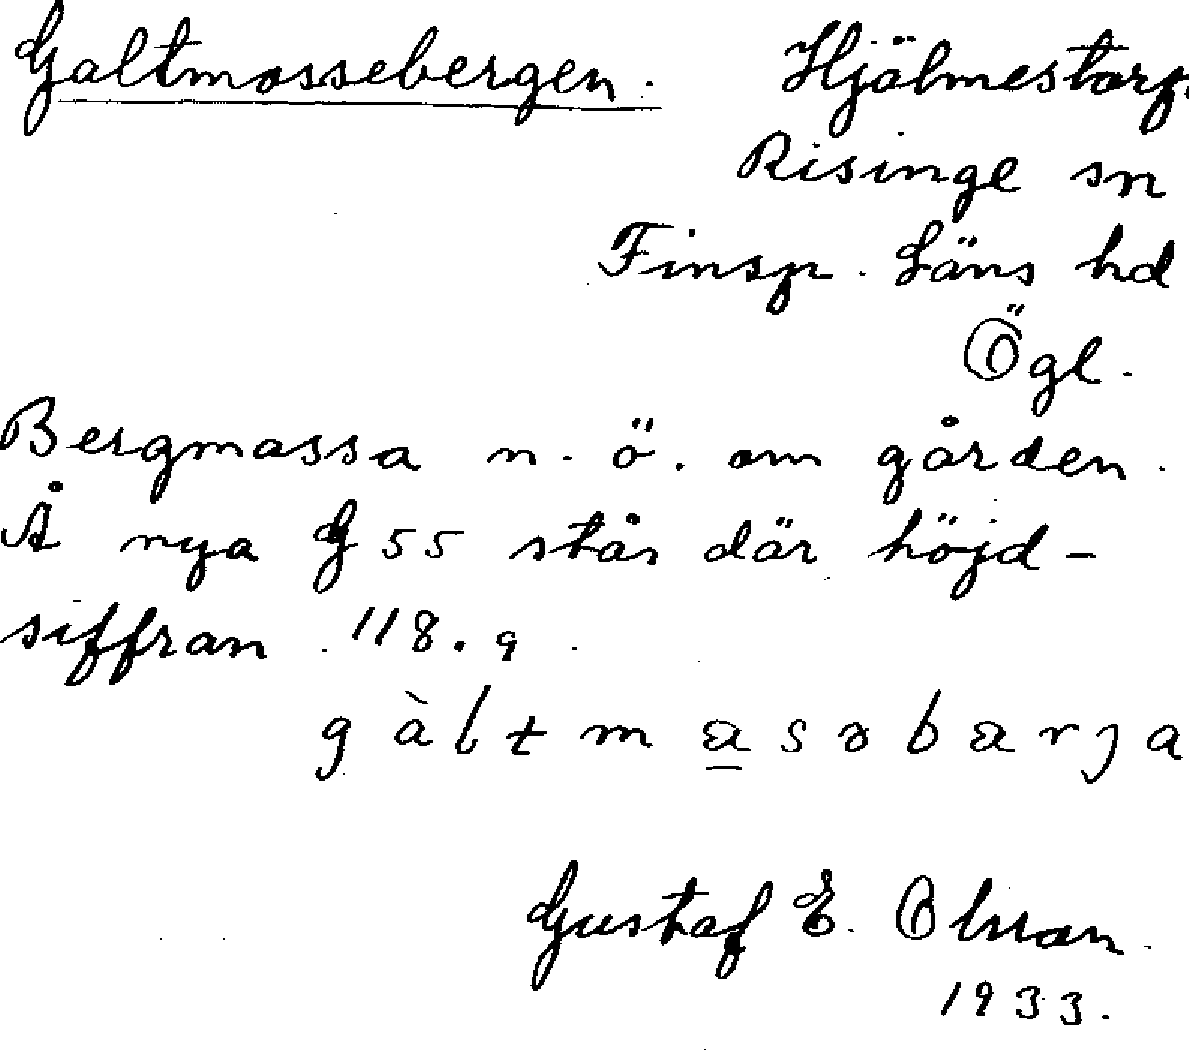 Galtmossebergen. Hjälmestorp.
Risinge sn
Finsp. Läns hd
Ögl.
Bergmassa n. ö. om gården.
Å nya G 55 står där höjd-
siffran 118.9.
Gustaf E. Olsson.
1933.